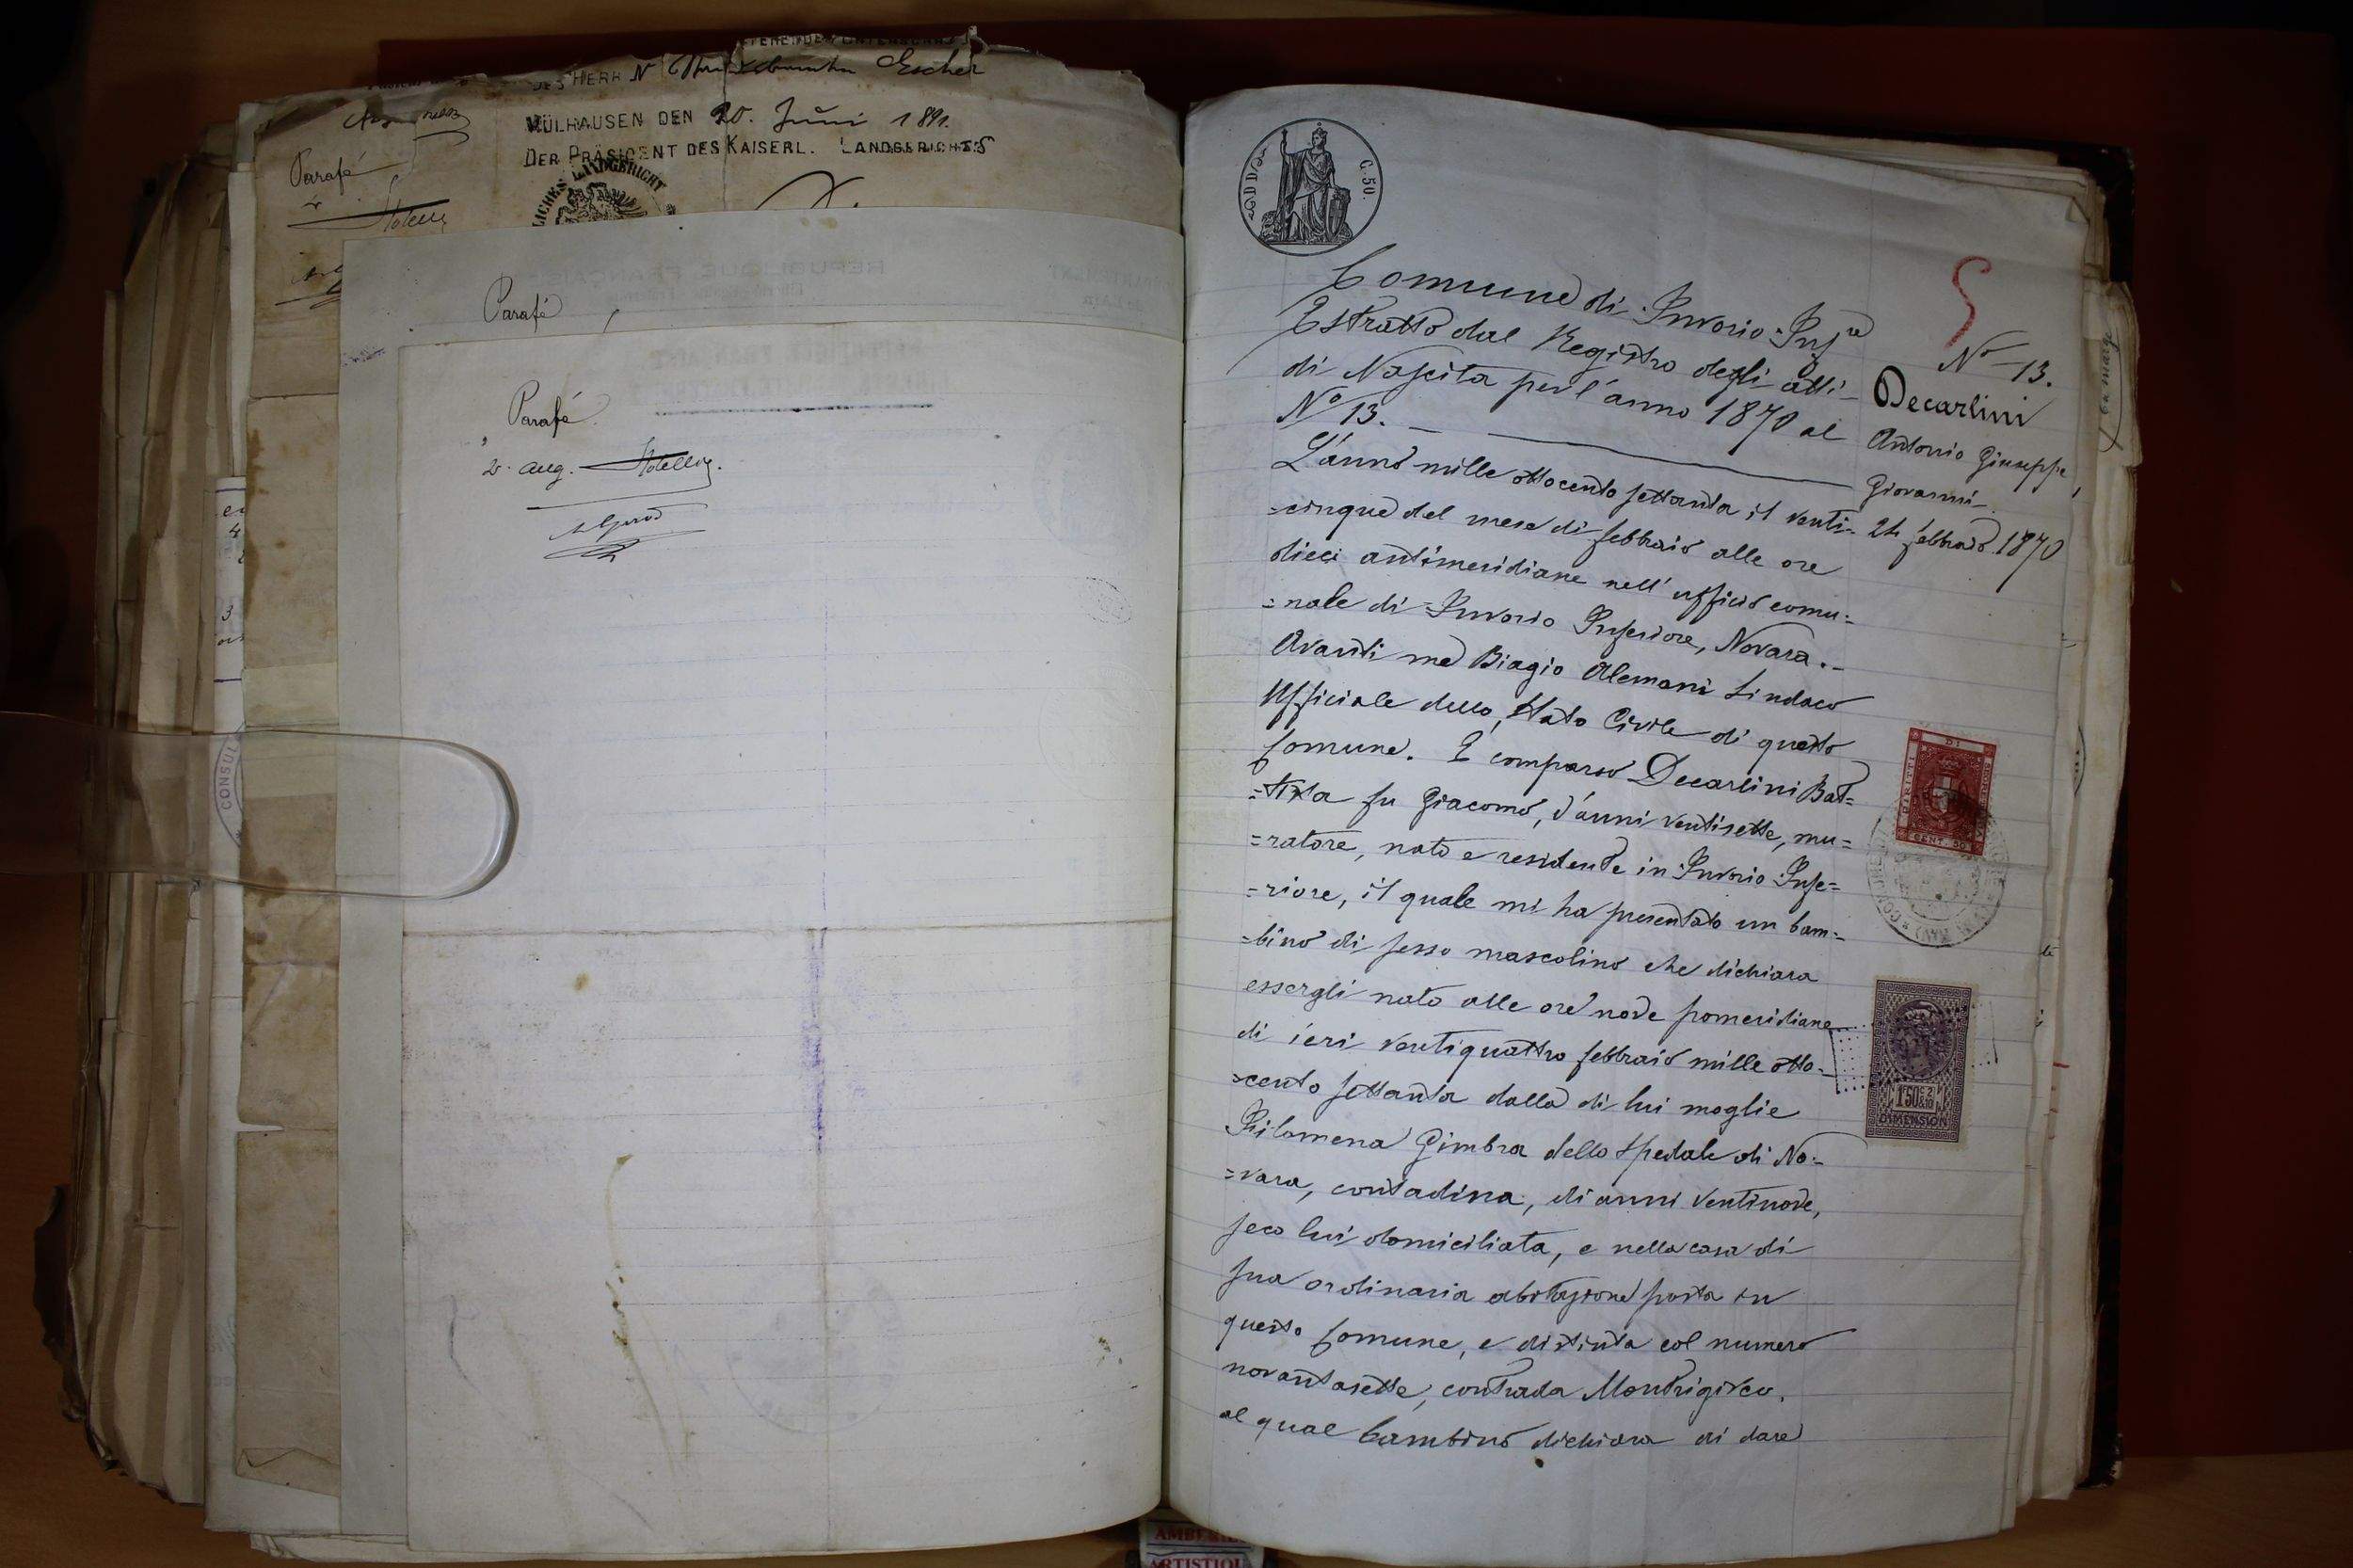 DES HERR N Escher
MÜLHAUSEN DEN 20. Juni 1891.
DER PRÄSIDENT DES KAISERL. LANDGERICHTS
LANDGERICHT
Parafé
Parafé
Parafé
CONSUL
C. 50.
Comune di Invorio Infre
Estratto dal Registro degli atti
di Nascita per l'anno 1870 al
No 13.
L'anno mille ottocento settanta il venti-
=cinque del mese di febbraio alle ore
dieci antimeridiane nell'ufficio comu=
=nale di Invorio Inferiore, Novara.-
Avanti me Biagio Alemani Sindaco
Ufficiale dello Stato Civile di questo
Comune. È comparso Decarlini Bat=
=tista fu Giacomo, d'anni ventisette, mu=
=ratore, nato e residente in Invorio Infe=
=riore, il quale mi ha presentato un bam=
=bino di sesso mascolino che dichiara
essergli nato alle ore nove pomeridiane
di ieri ventiquattro febbraio mille otto-
=cento settanta dalla di lui moglie
Filomena Gimbra dello Spedale di No=
=vara, contadina, di anni ventinove,
seco lui domiciliata, e nella casa di
sua ordinaria abitazione posta in
questo Comune, e distinta col numero
novantasette, contrada Montrigiasco,
al qual bambino dichiara di dare
No 13.
Decarlini
Antonio Giuseppe
Giovanni
24 febbraio 1870
DIRITTI
CENT. 50
1F50 & 2/10
DIMENSION
en marge
ARTISTIQU